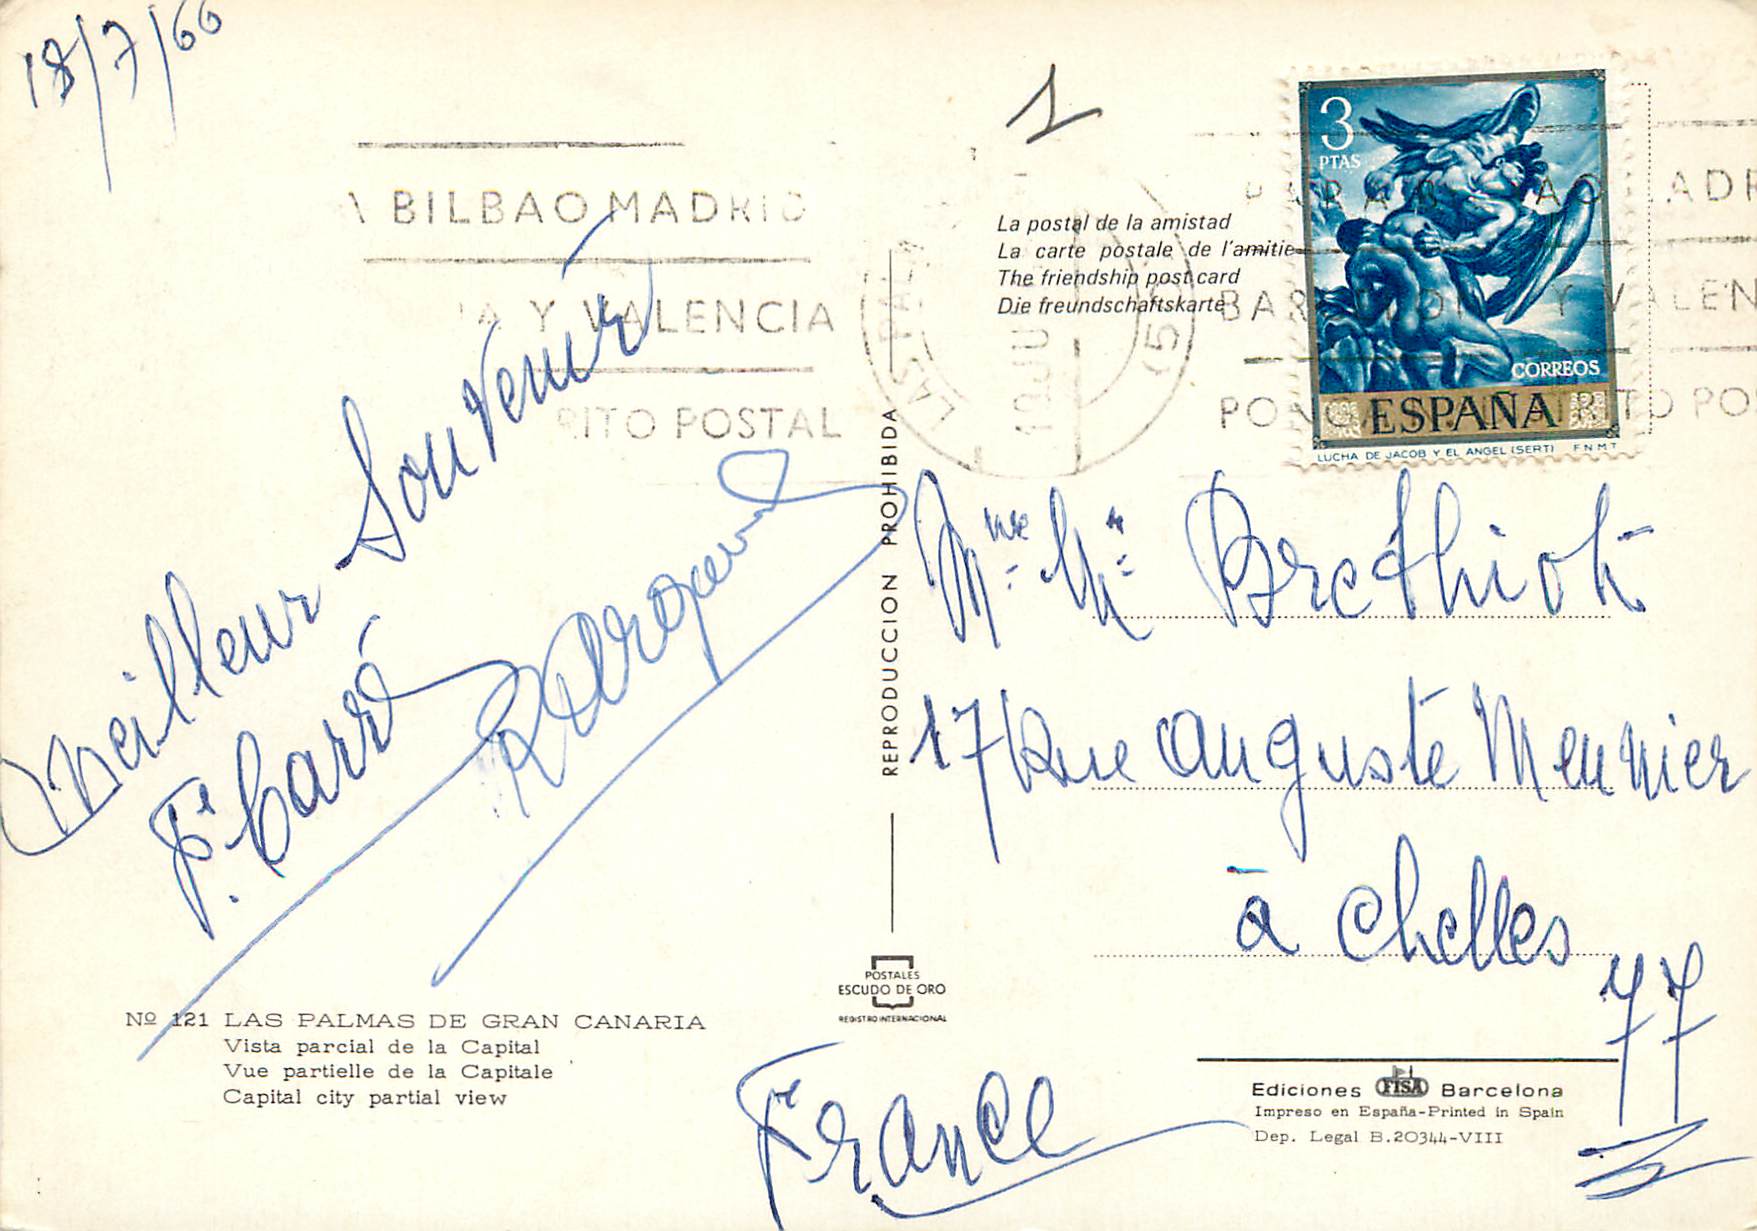 18/7/66
1
BILBAO MADRID
A Y VALENCIA
RITO POSTAL
Meilleur Souvenir
F. Carré
La postal de la amistad
La carte postale de l'amitie
The friendship post card
Die freundschaftskarte
LAS PALMAS
3
PTAS
CORREOS
ESPAÑA
LUCHA DE JACOB Y EL ANGEL (SERT) F N M T
BAR Y VALEN
Mme Mr Brethiot
17 Rue Auguste Meunier
à Chelles
77
France
REPRODUCCION PROHIBIDA
POSTALES
ESCUDO DE ORO
REGISTRO INTERNACIONAL
Nº 121 LAS PALMAS DE GRAN CANARIA
Vista parcial de la Capital
Vue partielle de la Capitale
Capital city partial view
Ediciones FISA Barcelona
Impreso en España-Printed in Spain
Dep. Legal B.20344-VIII